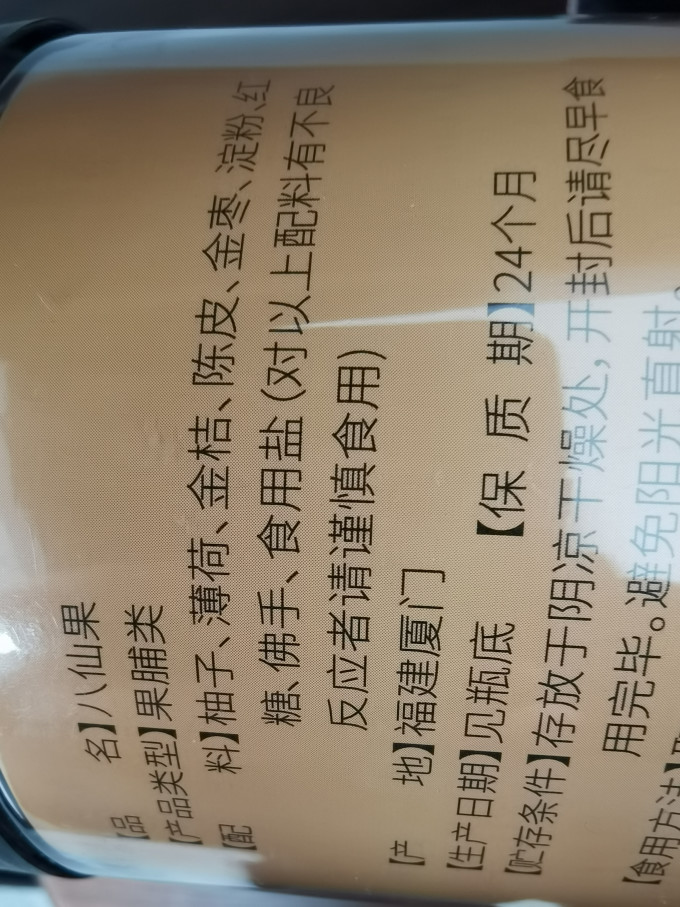 【品 名】八仙果
【产品类型】果脯类
【配 料】柚子、薄荷、金桔、陈皮、金枣、淀粉、红
糖、佛手、食用盐(对以上配料有不良
反应者请谨慎食用)
【产 地】福建厦门
【生产日期】见瓶底 【保 质 期】24个月
【贮存条件】存放于阴凉干燥处,开封后请尽早食
用完毕。避免阳光直射。
【食用方法】